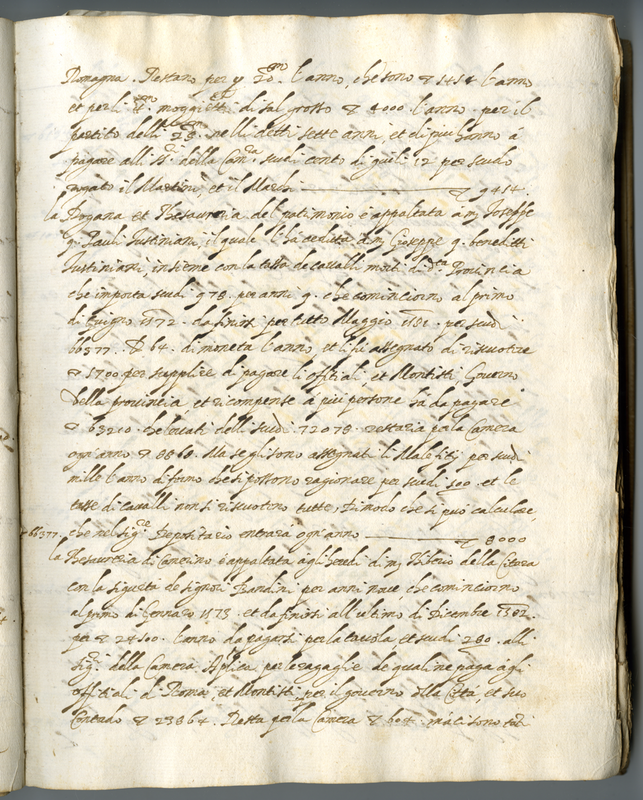 Romagna. Restano per ▽ 20 m l'anno, che sono ▽ 1414 l'anno
et per li moggi di sal grosso ▽ 8000 l'anno per il
partito delli nelli detti sette anni, et di più hanno à
pagare alli della Cam.ra scudi cento di giulij 12 per scudo
▽ 9414.
la Dogana et Thesaureria del patrimonio è appaltata à m. Joseppe
q. Pauli Justiniani, il quale l'ha ceduta à m. Gioseppe q. benedetti
Justiniani, insieme con la tassa de cavalli morti di d.ta Provincia
che importa scudi 978. per anni 9. che cominciorno al primo
di Giugno 1572. da finirsi per tutto Maggio 1581. per scudi
66377. 64. di moneta l'anno, et li fu assegnato di riscuotere
▽ 1700 per supplire à pagare li offitiali, et Montisti, Governo
della provincia, et ricompense à più persone ha da pagare
▽ 63210. che levati delli scudi 72078. restaria per la Camera
ogn'anno ▽ 8868. Ma se gli sono assegnati li Malefitij per scudi
mille l'anno di forno che si possono ragionare per scudi 500. et le
tasse di cavalli non si riscuotono tutte, di modo che si può calculare,
▽ 66377. che nel sig.re Depositario entrarà ogn'anno ▽ 8000
la Thesaureria di Camerino è appaltata agli heredi di m. Tiberio della
con la sigurtà de signori Bandini per anni nove che cominciorno
al primo di Gennaro 1573. et da finirsi all'ultimo di Dicembre 1582.
per ▽ 24500. l'anno da pagarsi per la tavola et scudi 280. alli
Sig.ri della Camera Ap.lica per le regaglie de quali ne paga agli
offitiali di Roma, et Montisti, per il governo della Città, et suo
Contado ▽ 23864. Resta per la Camera ▽ 604. ma ci sono